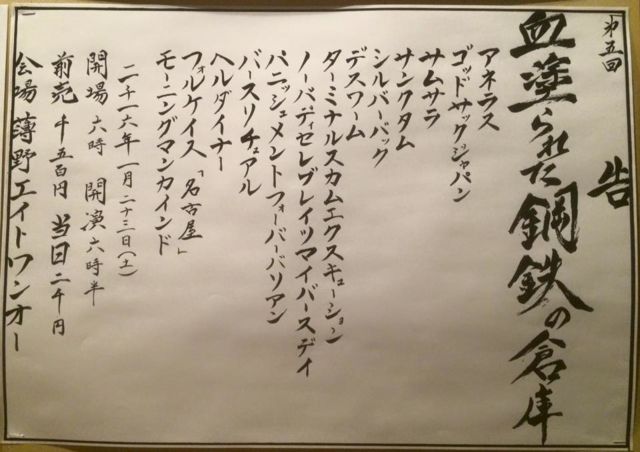 告
第五回
血塗られた鋼鉄の倉庫
アネラス
ゴッドサックジャパン
サムサラ
サンクタム
シルバーバック
デスワーム
ターミナルスカムエクスキューション
ノーバディセレブレイツマイバースデイ
パニッシュメントフォーバーバリアン
バースリチュアル
ヘルダイナー
フォルケイス「名古屋」
モーニングマンカインド
二千十六年一月二十三日(土)
開場 六時 開演 六時半
前売 千五百円 当日 二千円
会場 薄野エイトワンオー